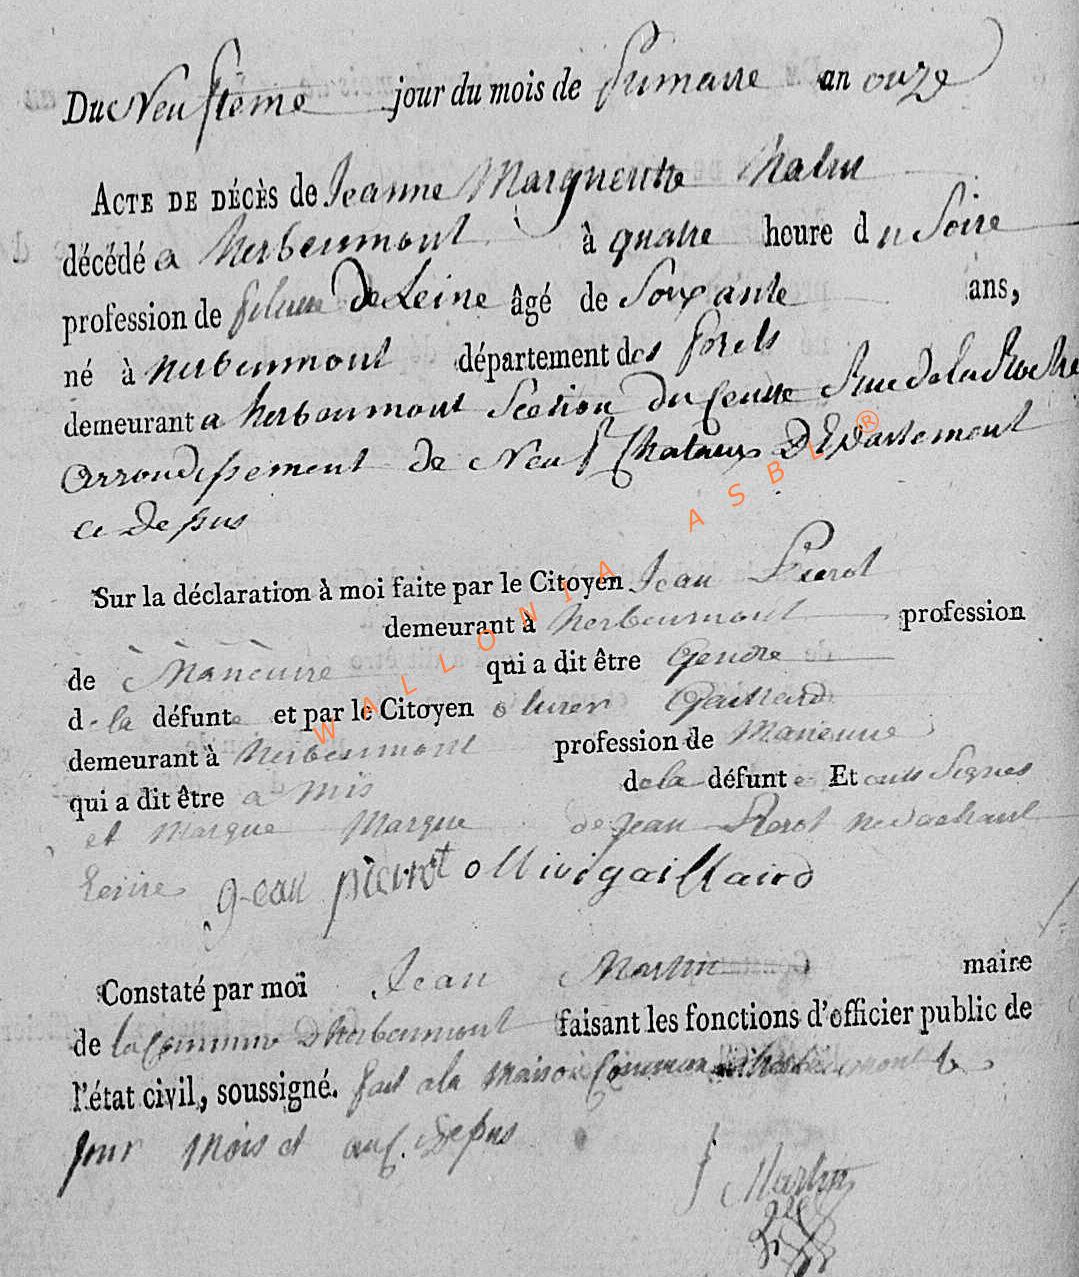 Du Neufieme jour du mois de frimaire an onze
ACTE DE DÉCÈS de Jeanne Marguerite
décédé a herbeumont à quatre heure du Soire
profession de fileuse De Leine âgé de Soixante ans,
né à herbeumont département des forets
demeurant a herbeumont Section du Centre Rue de la Roche
arrondissement de Neuf Chataux Departement
ci Dessus
Sur la déclaration à moi faite par le Citoyen Jean Pierot
demeurant à herbeumont profession
de Maneuvre qui a dit être Gendre
d e la défunte et par le Citoyen olivier Gaillard
demeurant à herbeumont profession de
qui a dit être a mis de la défunte Et ont Signes
et Marque Marque de Jean Pierot ne sachant
Ecrire gean pierrot ollivi gaillaird
Constaté par moi Jean Martin maire
de la Commune dherbeumont faisant les fonctions d'officier public de
l'état civil, soussigné. fait a la Maison Commune dherbeumont le
jour Mois et an Dessus
J Martin
WALLONIA ASBL ®